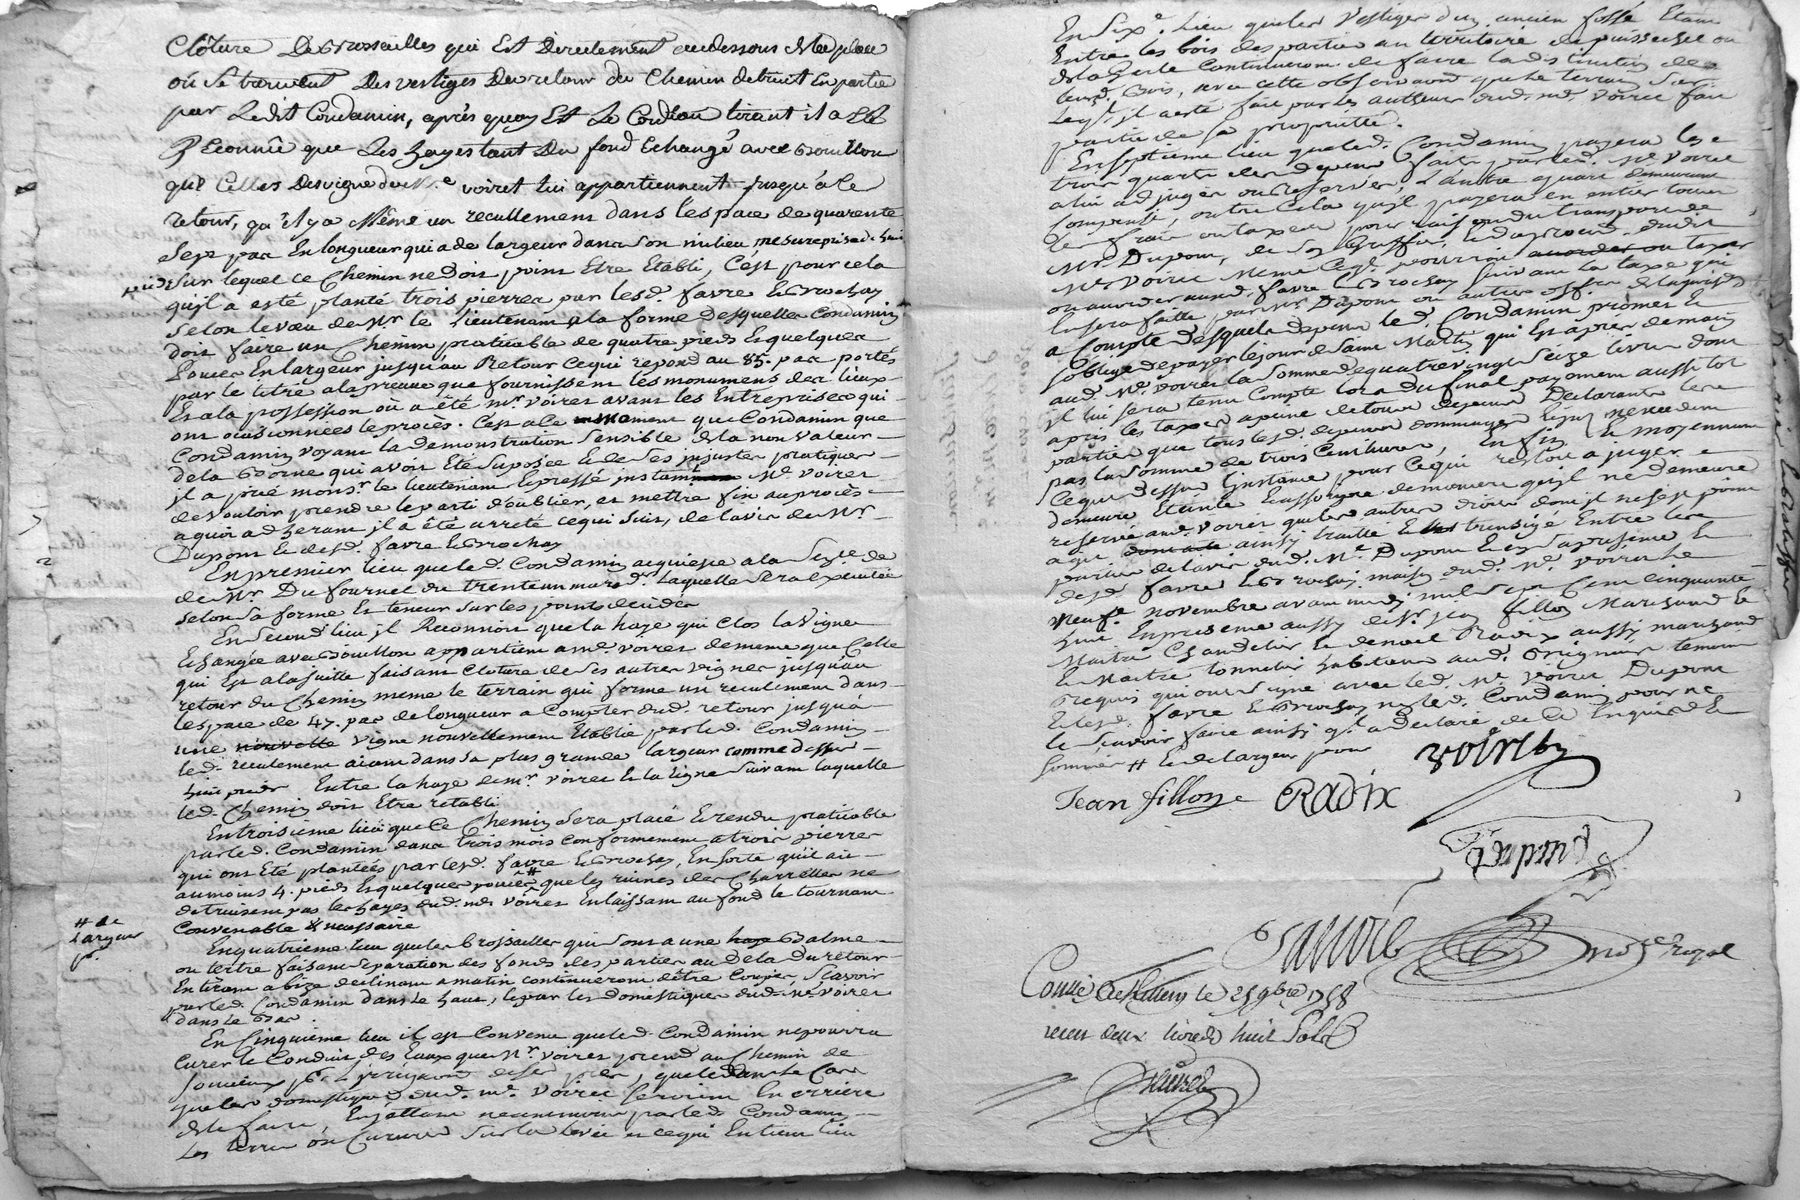 Cloture De Brossailles qui Est directement audessous de la place
où Se trouvent Des vestiges Du retour du Chemin detruit En partie
par Ledit Condamin, après quoy Est Le Cordeau tirant il a Eté
Reconnû que Les hayes tant Du fond Echangé avec Bouillon
que Celles Des vignes dud. Mr. voiret lui appartiennent jusqu'à le
retour, qu'il y a Même un recullement dans l'espace de quarente
Sept pas En longueur qui a de largeur dans Son milieu mesure prise de huit
pieds Sur lequel ce Chemin ne doit point Etre Etabli, C'est pour cela
qu'il a esté planté trois pierres par lesd. favre & Brochay
Selon le vœu de Mr le Lieutenant a la forme desquelles Condamin
doit faire un Chemin praticable de quatre pieds Et quelques
pouces En largeur jusqu'au Retour Ce qui repond au 85. pas portés
par le titre a la preuve que fournissent les monumens des lieux
Et a la possession où a été mr. voiret avant les Entreprises qui
ont ocasionnées le procès. C'est a Ce moment que Condamin
Condamin voyant la demonstration Sensible de la non valeur
de la Borne qui avoit Eté Suposée & de Ses injustes pratiques
il a prié monsr. le lieutenant Epressé instament Mr. voiret
de vouloir prendre le parti d'oublier, et mettre fin au procès
a quoi adherant il a été arreté ce qui Suit, de l'avis de Mr.
Dupont & desd. favre & Brochay
En premier lieu que led. Condamin acquiesce a la Sentce. de
de Mr. Du fournel du trente un mars dr. Laquelle Sera Executée
Selon Sa forme Et teneur Sur les points decidés
En Second lieu il Reconnoit que la haye qui Clos La vigne
Echangée avec Bouillon appartient a mr. voiret de meme que Celle
qui Est a la suitte faisant Cloture de Ses autres vignes jusqu'au
retour du Chemin meme le terrain qui forme un recullement dans
l'espace de 47. pas de longueur a Compter dud. retour jusqu'à
une nouvelle vigne nouvellement Etablie par led. Condamin
led. recullement aiant dans Sa plus grande largeur comme dessus
huit pieds Entre la haye de mr. voiret & la ligne Suivant laquelle
led. Chemin doit Etre retabli
En troisieme lieu que Ce Chemin Sera placé & rendu praticable
par led. Condamin dans trois mois Conformement a trois pierres
qui ont Eté plantées par lesd. favre & Brochay, En Sorte qu'il ait
au moins 4. pieds Et quelques pouces # que les ruines des Charrettes ne
detruisent pas les hayes dud. mr. voiret En laissant au fond le tournant
Convenable & necessaire
# de
Largeur
pr.
En quatrieme lieu que les brossailles qui Sont a une haye Balme
ou tertre faisant Separation des fonds des parties au dela du retour
En tirant a bize declinant a matin continueront d'être Coupés, Scavoir
par led. Condamin dans le haut, & par les domestiques dud. mr. voiret
dans le Bas.
En Cinquieme lieu il est Convenu que led. Condamin ne pourra
Curer le Conduit des Eaux que Mr. voiret prend au Chemin de
que les domestiques dud. mr. voiret Seroient En arriere
de le faire, En jettant par led. Condamin
Les terres ou Curures Sur la levée et ce qui En tient lieu
En Six. Lieu que les Vestiges d'un ancien fossé Etant
Entre les bois des parties au territoire de puisseche ou
de la Serle Continueront de faire la distinction de
leursd. Bois, avec cette observation que le terrain
il a esté fait par les autheurs dud. mr. Voiret fait
partie de Sa proprietté.
En Septieme lieu que led. Condamin payera les
trois quarts des depens faits par led. Mr. Voiret
a lui adjugés ou reservés, L'autre quart demeurant
Compensé, outre Cela qu'il payera en entier toutes
les frais ou taxes pour raison du transport de
Mr. Dupont, de Son Greffier, & dud.
Mr. Voiret Meme Ce qu'il pourroit accorder ou taxer
ou accorder auxd. favre & Brochay Suivant La taxe qui
En Sera faitte par Mr. Dupont ou autre officier
a Compte desquels depens led. Condamin promet &
s'oblige de payer le jour de Saint Martin qui Est apres demain
aud. Mr. voiret la Somme de quatre vingt Seize livres dont
il lui Sera tenu Compte lors du final payement aussitot
après les taxes a peine de tous depens Declarants les
parties que tous lesd. depens dommages &
pas la Somme de trois Cent livres, En fin & moyennant
Ce que dessus l'instance pour Ce qui restoit a juger
demeure Eteinte & assoupie de maniere qu'il ne demeure
reservé a mr. Voiret que les autres droits dont il ne S'est point
agi ainsy traitté & transigé Entre les
parties de l'avis dud. Mr. Dupont & En Sa presence &
desd. favre & Brochay maison dud. Mr. voiret le
Neufe. Novembre avant midi mil Sept Cent Cinquante
huit En presence aussy de Sr. Jean fillon Marchand &
Maitre Chandelier & de noel Radix aussy marchand
& Maitre tonnelier habitans aud. temoins
requis qui ont Signé avec led. Mr. Voiret Dupont
& lesd. favre & Brochay non led. Condamin pour ne
le Scavoir faire ainsy qu'il a declaré de Ce Enquis &
Sommé # & de largeur pour
voiret
Jean fillon Radix
Dupont
notre royal
Conllé le 25 9bre 1758
reçu deux livres huit Sols